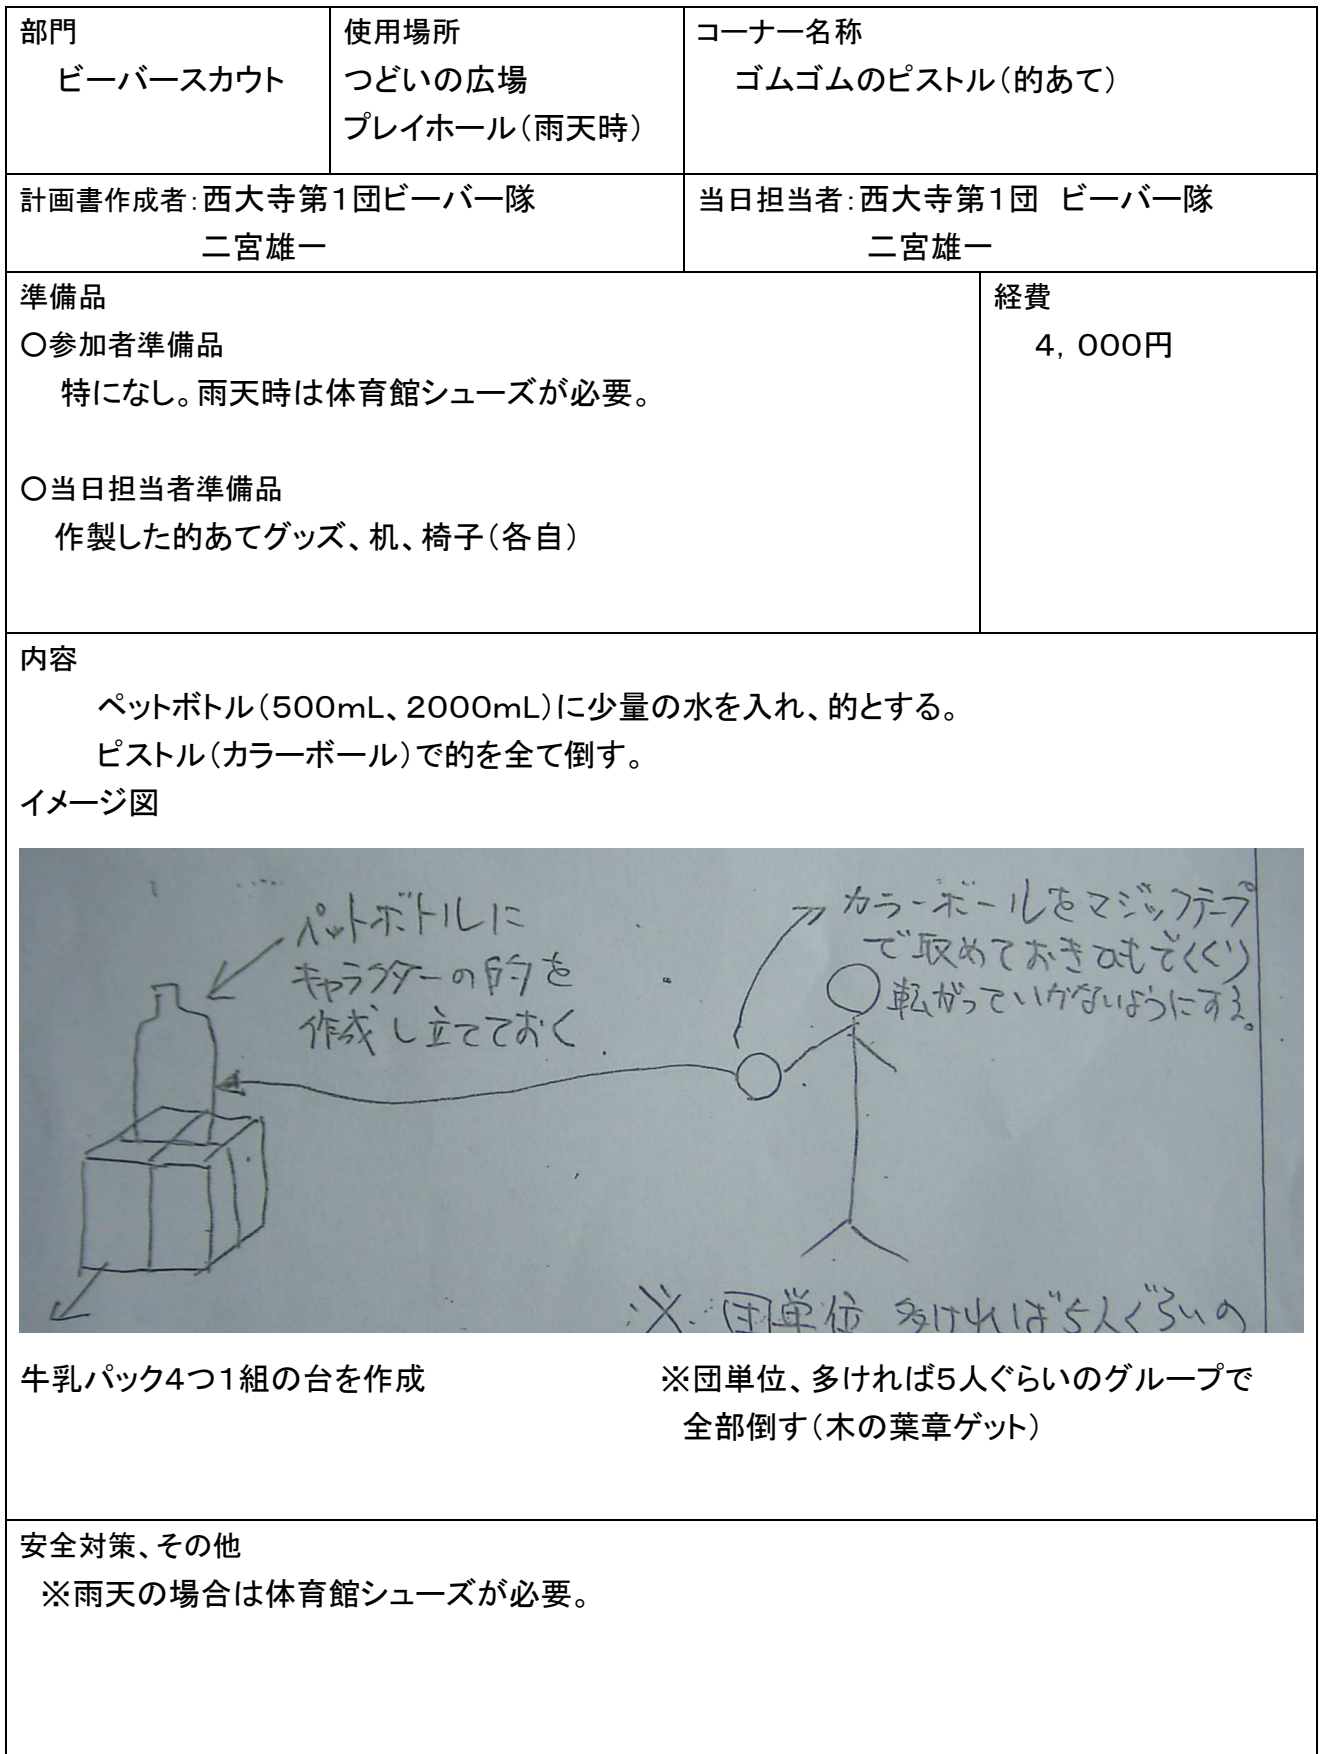 部門
ビーバースカウト
使用場所
つどいの広場
プレイホール（雨天時）
コーナー名称
ゴムゴムのピストル（的あて）
計画書作成者：西大寺第１団ビーバー隊
二宮雄一
当日担当者：西大寺第１団　ビーバー隊
二宮雄一
準備品
〇参加者準備品
特になし。雨天時は体育館シューズが必要。
〇当日担当者準備品
作製した的あてグッズ、机、椅子（各自）
経費
４，０００円
内容
ペットボトル（５００ｍL、２０００ｍL）に少量の水を入れ、的とする。
ピストル（カラーボール）で的を全て倒す。
イメージ図
ペットボトルに
キャラクターの的を
作成し立てておく
カラーボールをマジックテープ
で取めておきひもでくくり
転がっていかないようにする。
※団単位 多ければ5人ぐらいの
牛乳パック４つ１組の台を作成
※団単位、多ければ５人ぐらいのグループで
全部倒す（木の葉章ゲット）
安全対策、その他
※雨天の場合は体育館シューズが必要。